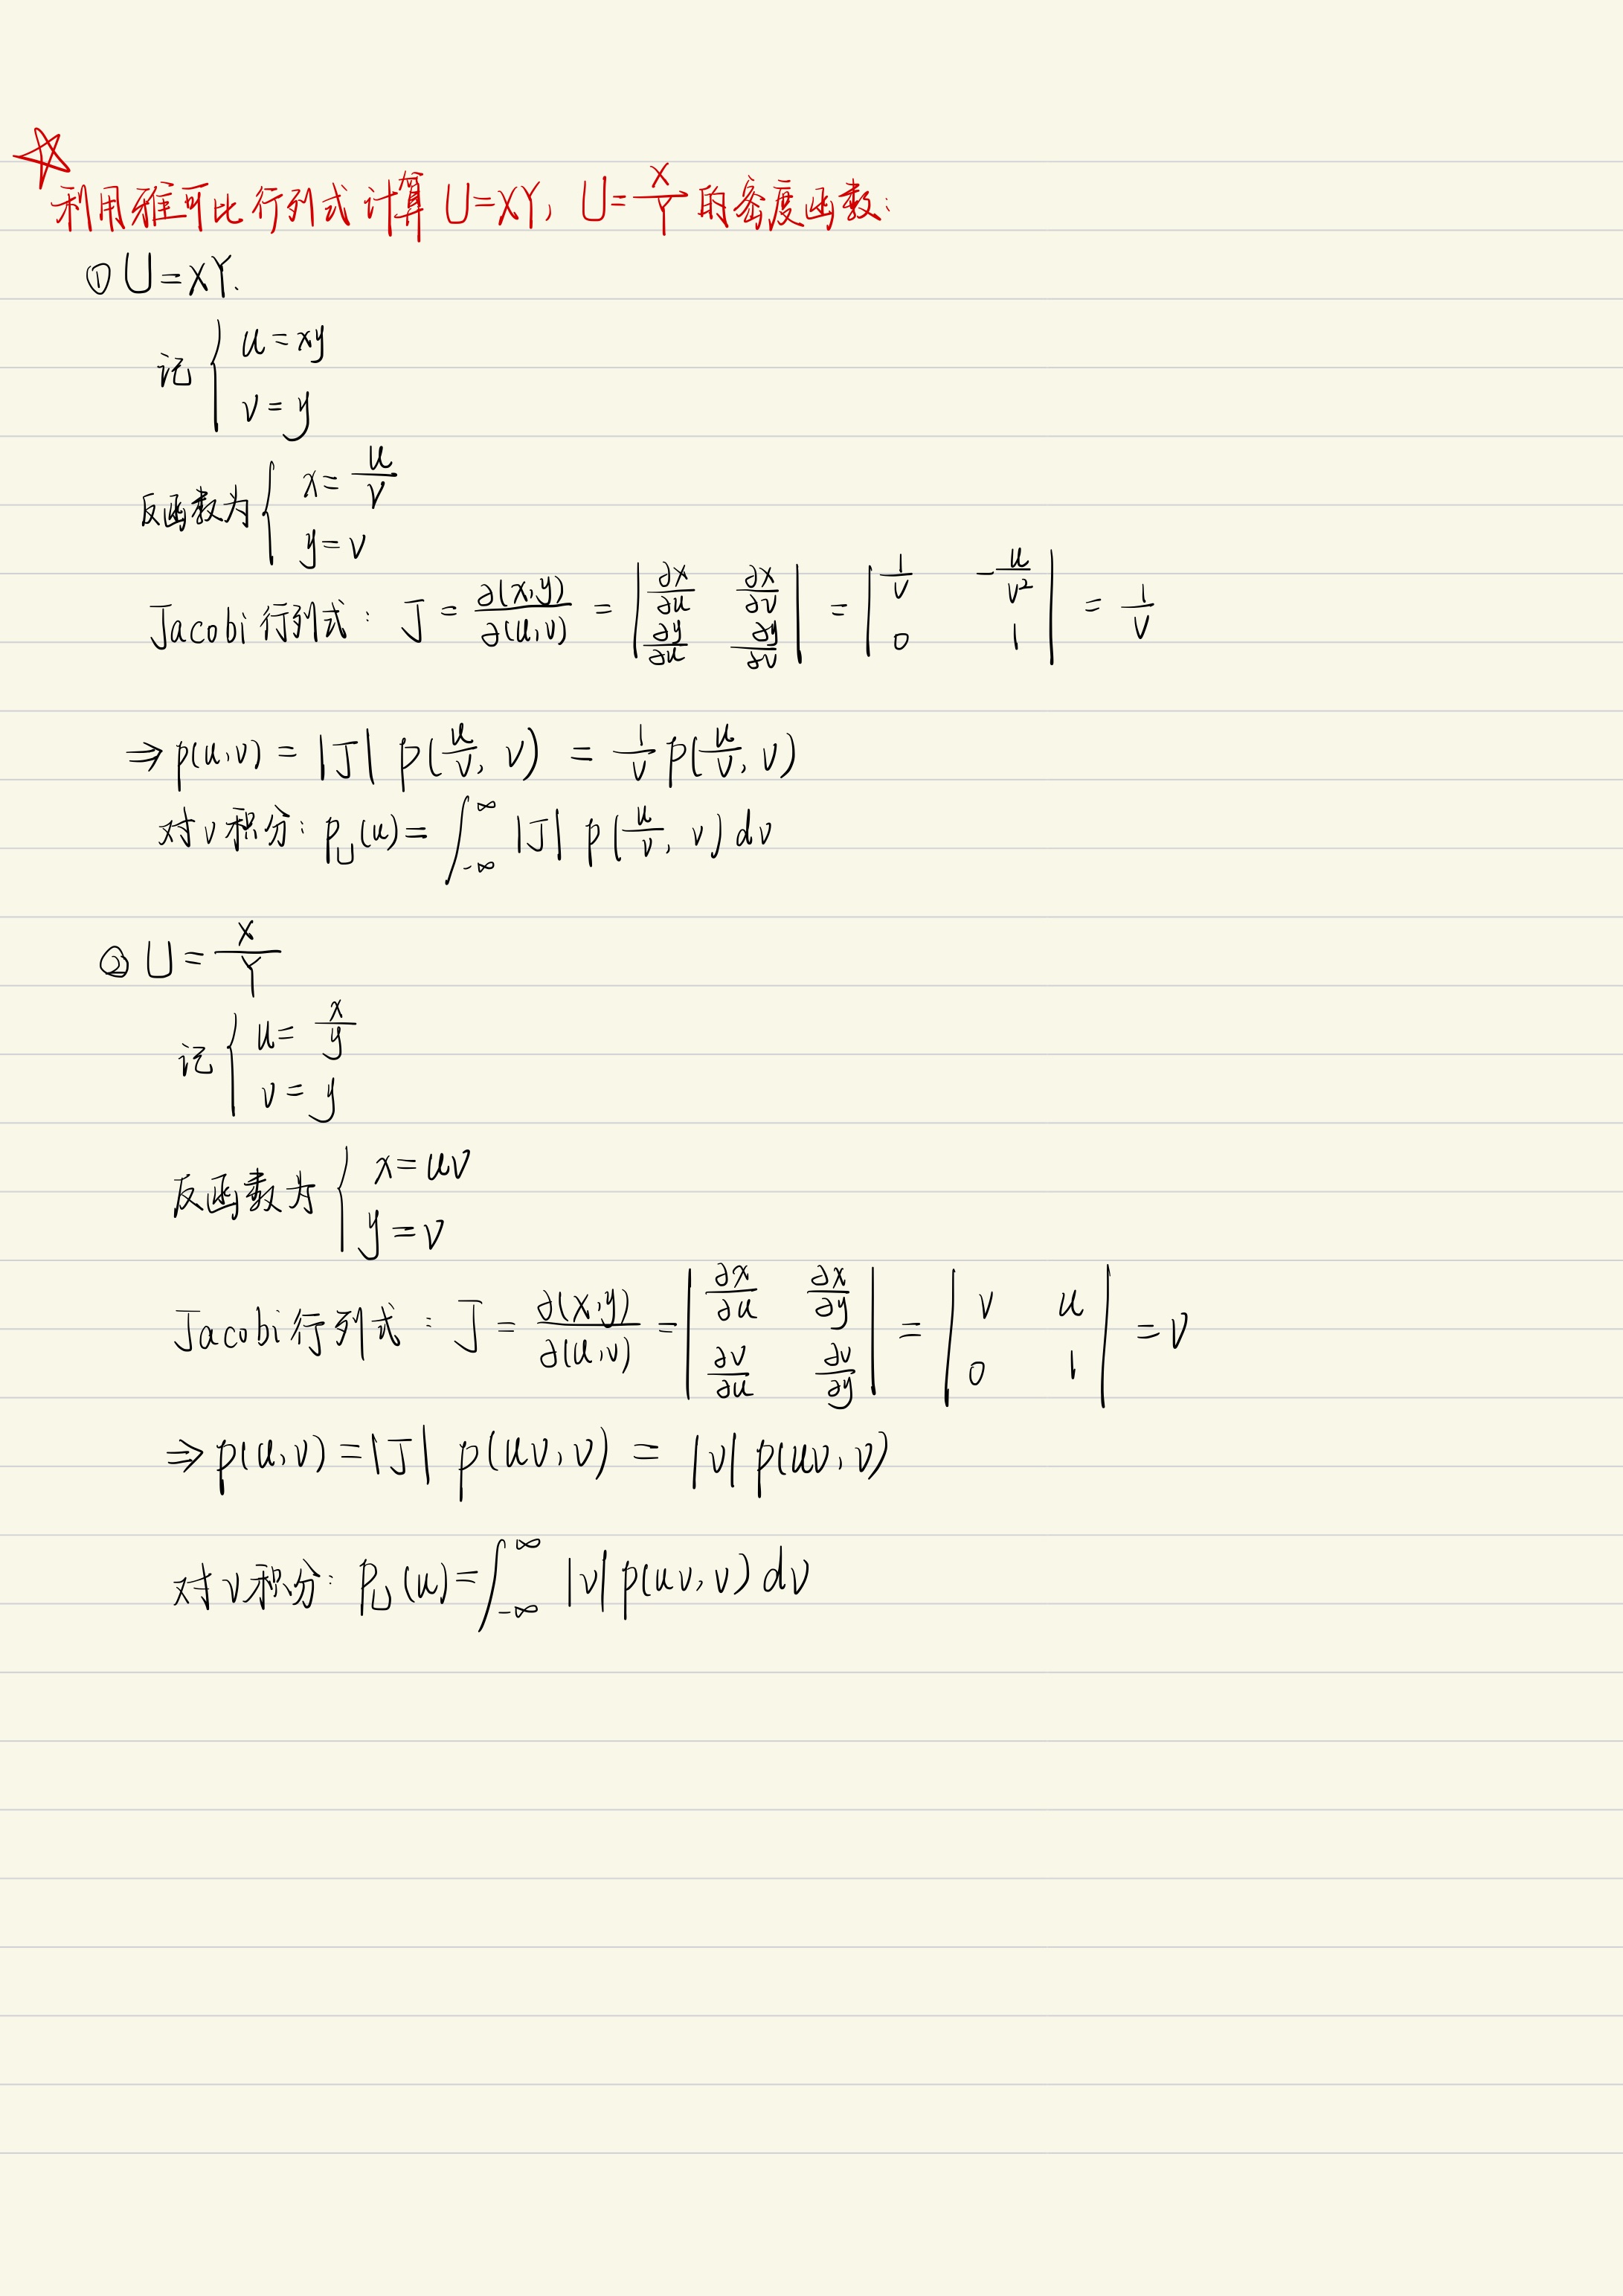 利用雅可比行列式计算 U=XY, U=X/Y 的密度函数:
① U=XY.
记 { u=xy
v=y
反函数为 { x=u/v
y=v
Jacobi 行列式: J = ∂(x,y)/∂(u,v) = | ∂x/∂u ∂x/∂v ; ∂y/∂u ∂y/∂v | = | 1/v -u/v² ; 0 1 | = 1/v
⇒ p(u,v) = |J| p(u/v, v) = 1/v p(u/v, v)
对 v 积分: p_U(u) = ∫_{-∞}^{∞} |J| p(u/v, v) dv
② U = X/Y
记 { u = x/y
v = y
反函数为 { x=uv
y=v
Jacobi 行列式: J = ∂(x,y)/∂(u,v) = | ∂x/∂u ∂x/∂y ; ∂v/∂u ∂v/∂y | = | v u ; 0 1 | = v
⇒ p(u,v) = |J| p(uv,v) = |v| p(uv,v)
对 v 积分: p_U(u) = ∫_{-∞}^{∞} |v| p(uv,v) dv